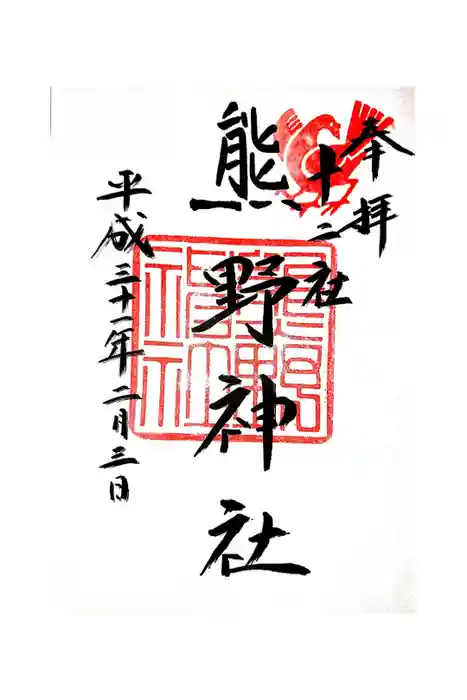 奉拝
十二社
熊野神社
平成三十一年二月三日
熊野
神社